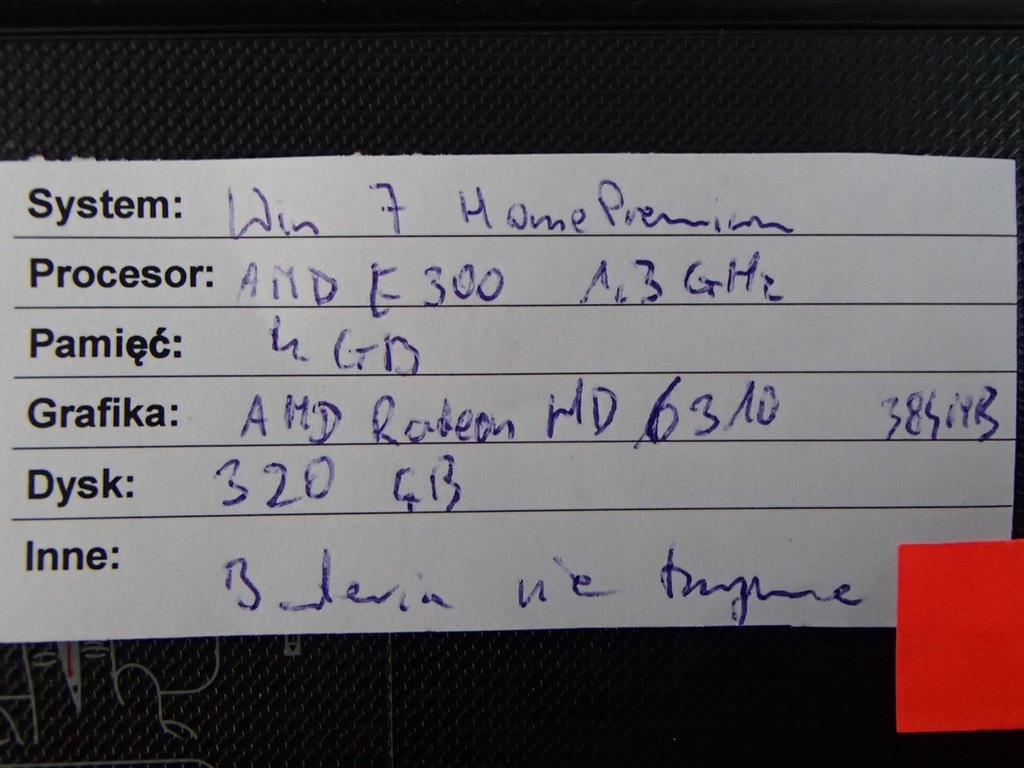 System: Win 7 Home Premium
Procesor: AMD E 300 1,3 GHz
Pamięć: 4 GB
Grafika: AMD Radeon HD 6310 384MB
Dysk: 320 GB
Inne:
Bateria nie trzyma